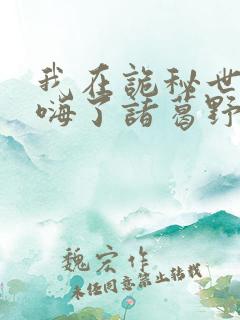 我在詭秘世
嗨了諸葛野
魏宏作
未经同意禁止转载